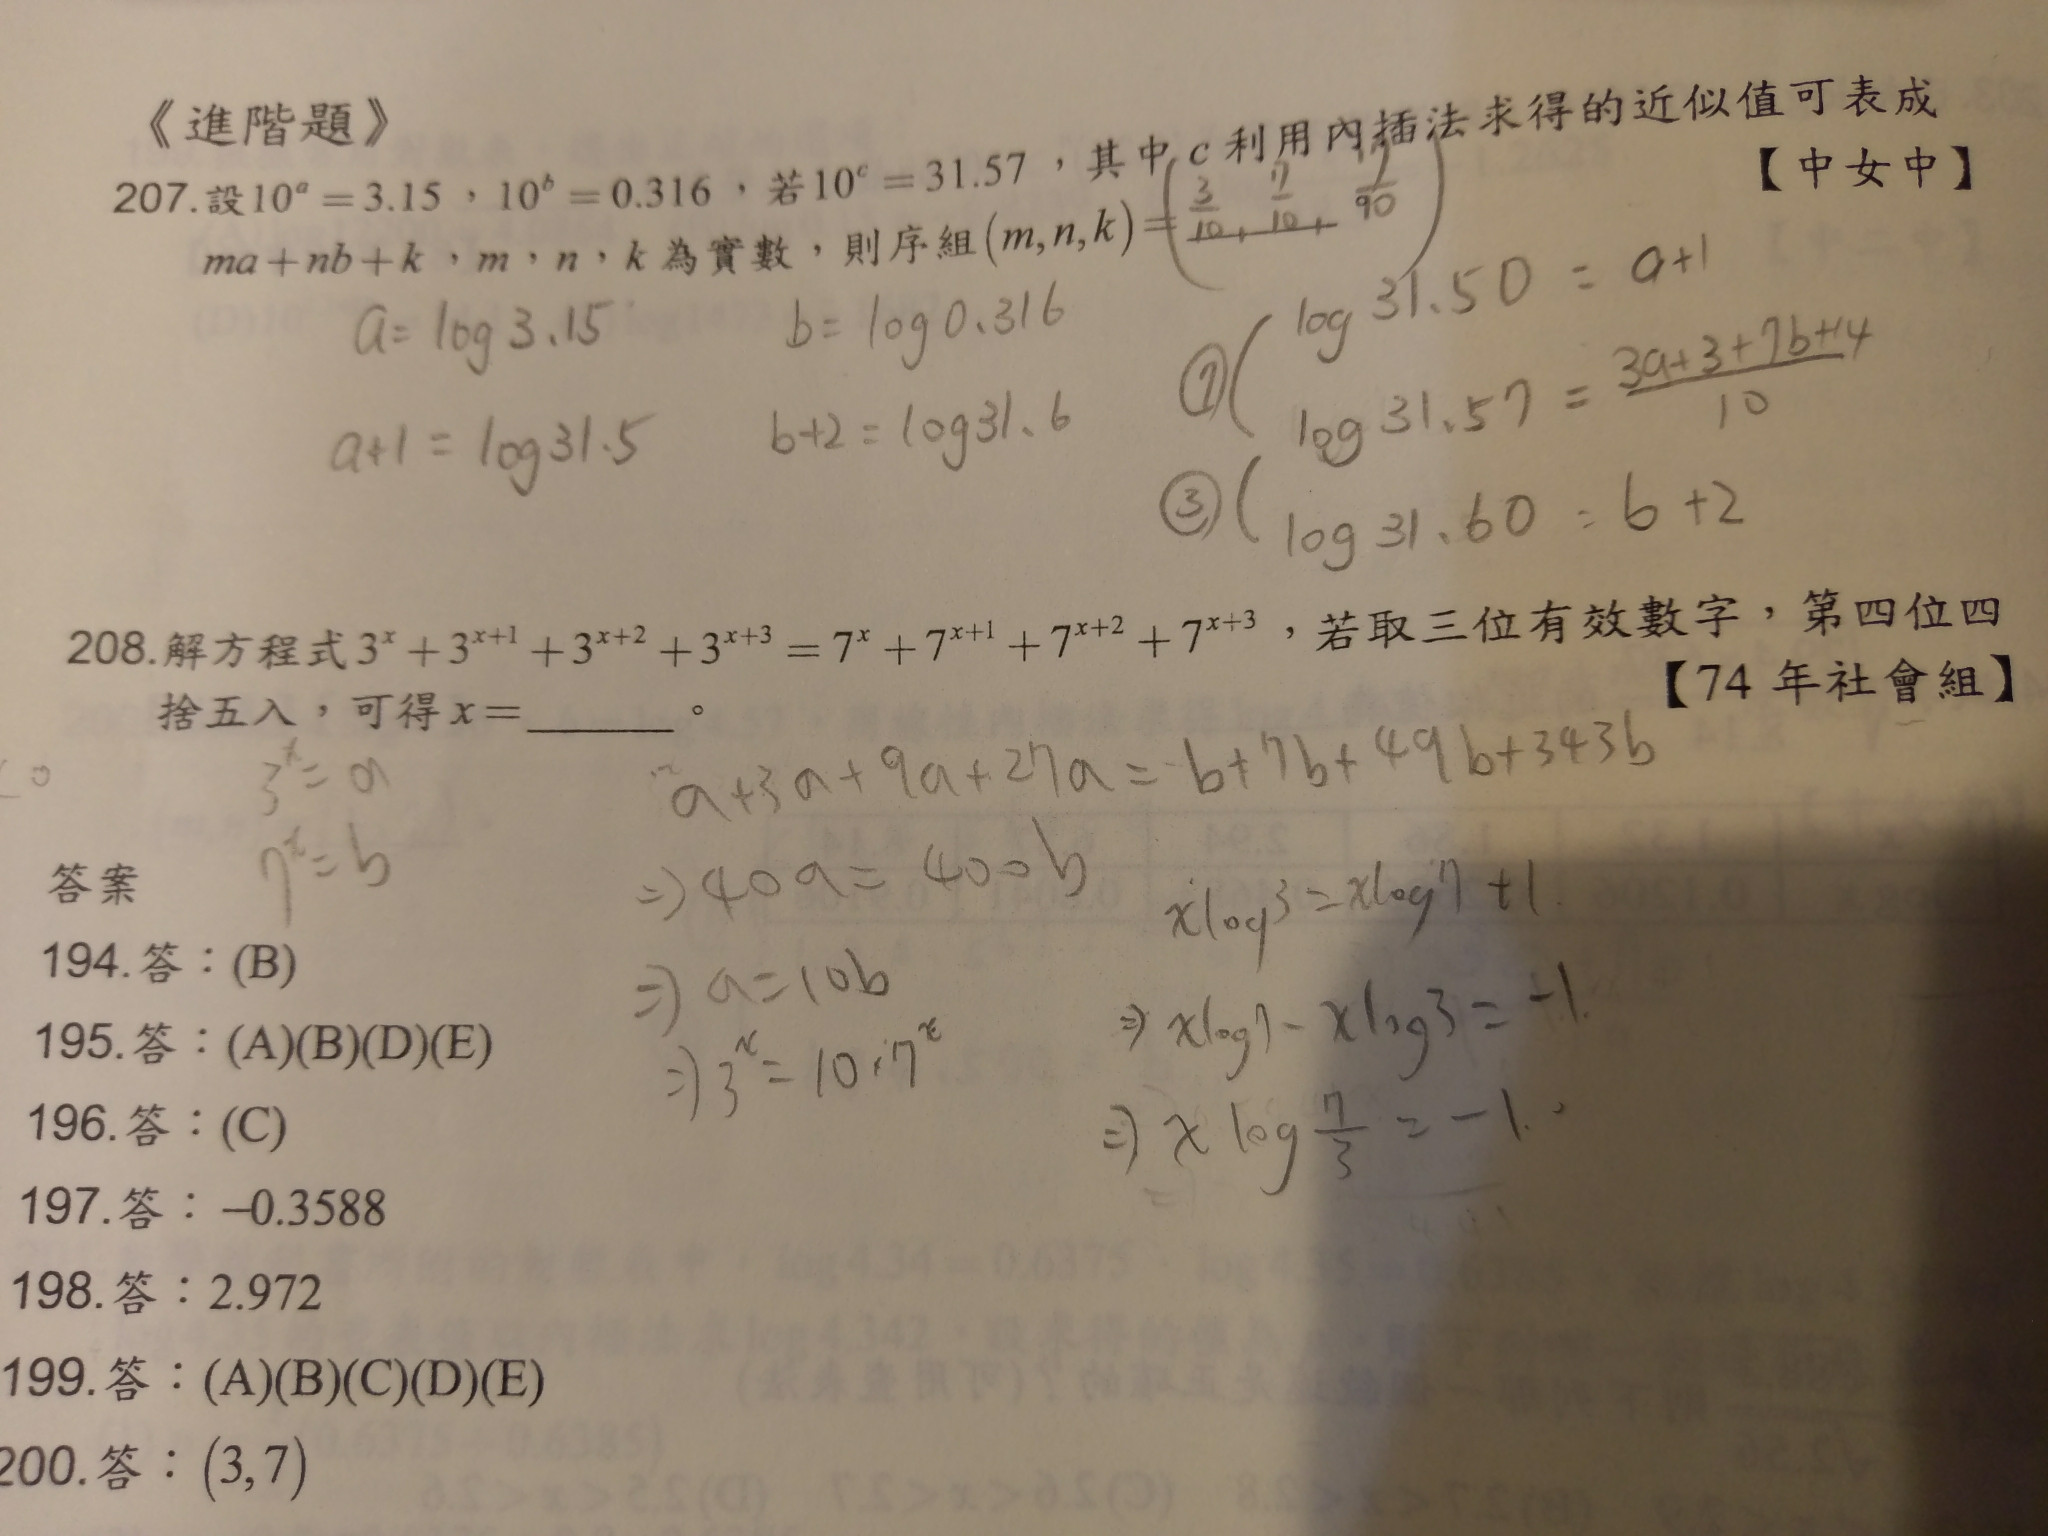 《進階題》
207.設10^a = 3.15，10^b = 0.316，若10^c = 31.57，其中 c 利用內插法求得的近似值可表成
ma+nb+k，m，n，k 為實數，則序組(m,n,k)=(3/10, 7/10, /90)
【中女中】
a= log 3.15
b= log 0.316
a+1 = log 31.5
b+2 = log 31.6
log 31.50 = a+1
⑦( log 31.57 = (3a+3+7b+14)/10
③( log 31.60 = b+2
208.解方程式 3^x + 3^(x+1) + 3^(x+2) + 3^(x+3) = 7^x + 7^(x+1) + 7^(x+2) + 7^(x+3)，若取三位有效數字，第四位四
捨五入，可得 x = ______。
【74 年社會組】
3^x = a
7^x = b
a+3a+9a+27a = b+7b+49b+343b
⇒ 40a = 400b
⇒ a = 10b
⇒ 3^x = 10·7^x
xlog3 = xlog7 +1
⇒ xlog7 - xlog3 = -1
⇒ x log 7/3 = -1
答案
194.答：(B)
195.答：(A)(B)(D)(E)
196.答：(C)
197.答：–0.3588
198.答：2.972
199.答：(A)(B)(C)(D)(E)
200.答：(3,7)